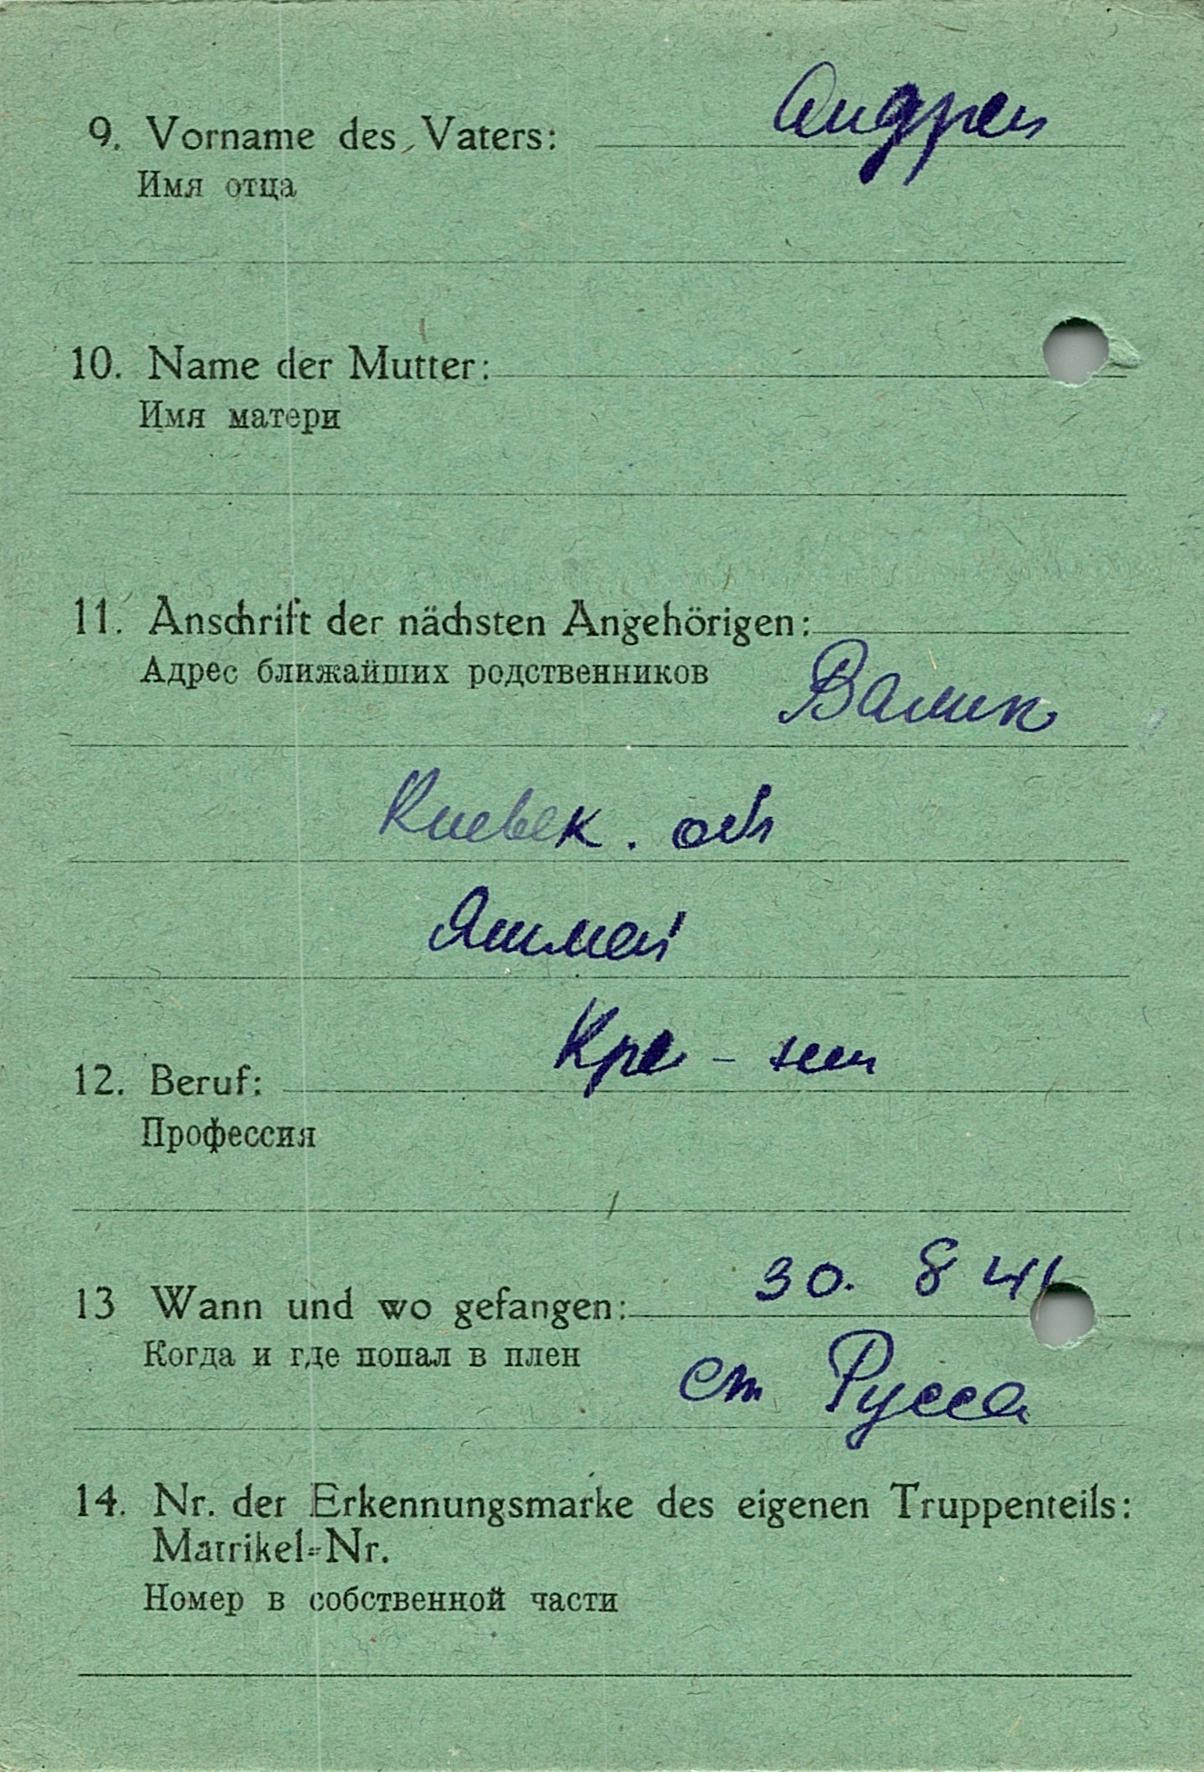 9. Vorname des Vaters: Андрей
Имя отца
10. Name der Mutter:
Имя матери
11. Anschrift der nächsten Angehörigen:
Адрес ближайших родственников
Киевск. об
Кре-нин
12. Beruf:
Профессия
30. 8 41
13 Wann und wo gefangen:
Когда и где попал в плен
Ст Русса
14. Nr. der Erkennungsmarke des eigenen Truppenteils:
Matrikel-Nr.
Номер в собственной части